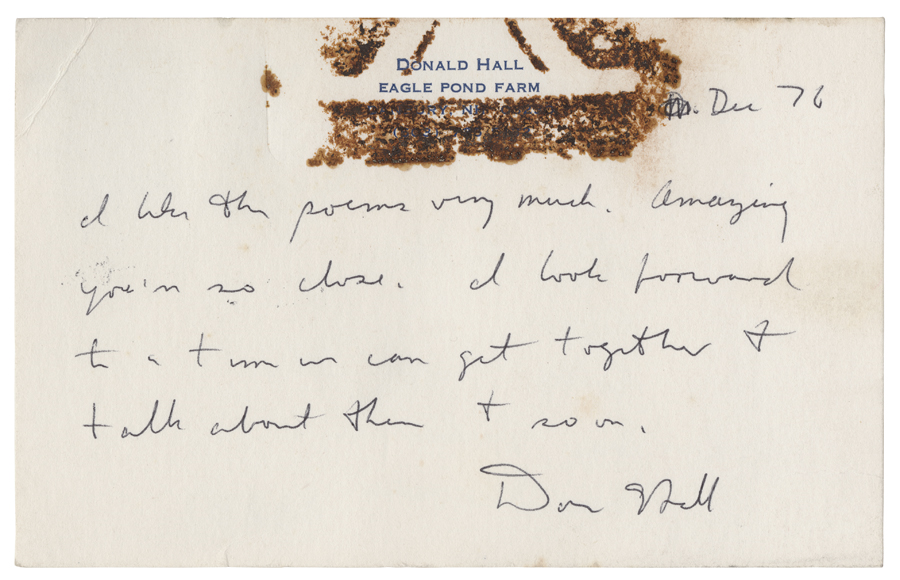 DONALD HALL
EAGLE POND FARM
Dec 76
I like the poems very much. Amazing
you're so close. I look forward
to a time we can get together &
talk about them & so on.
Don Hall